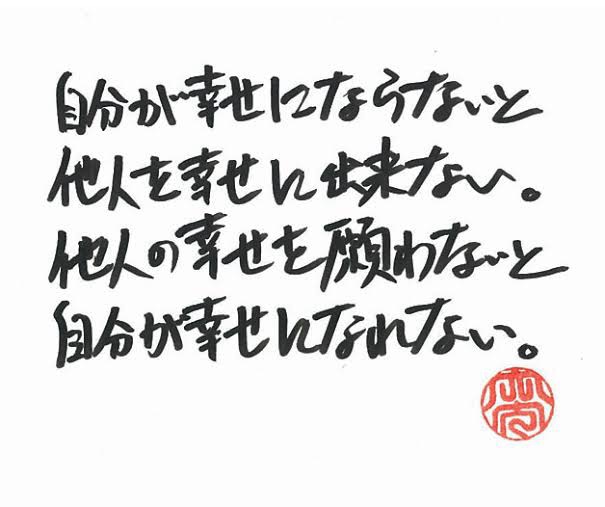 自分が幸せにならないと
他人を幸せに出来ない。
他人の幸せを願わないと
自分が幸せになれない。